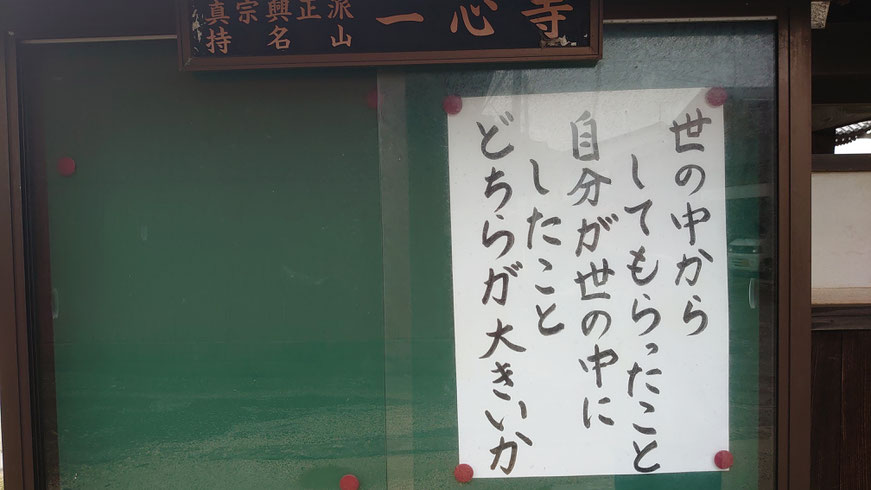 真宗興正派
持名山
一心寺
世の中から
してもらったこと
自分が世の中に
したこと
どちらが大きいか